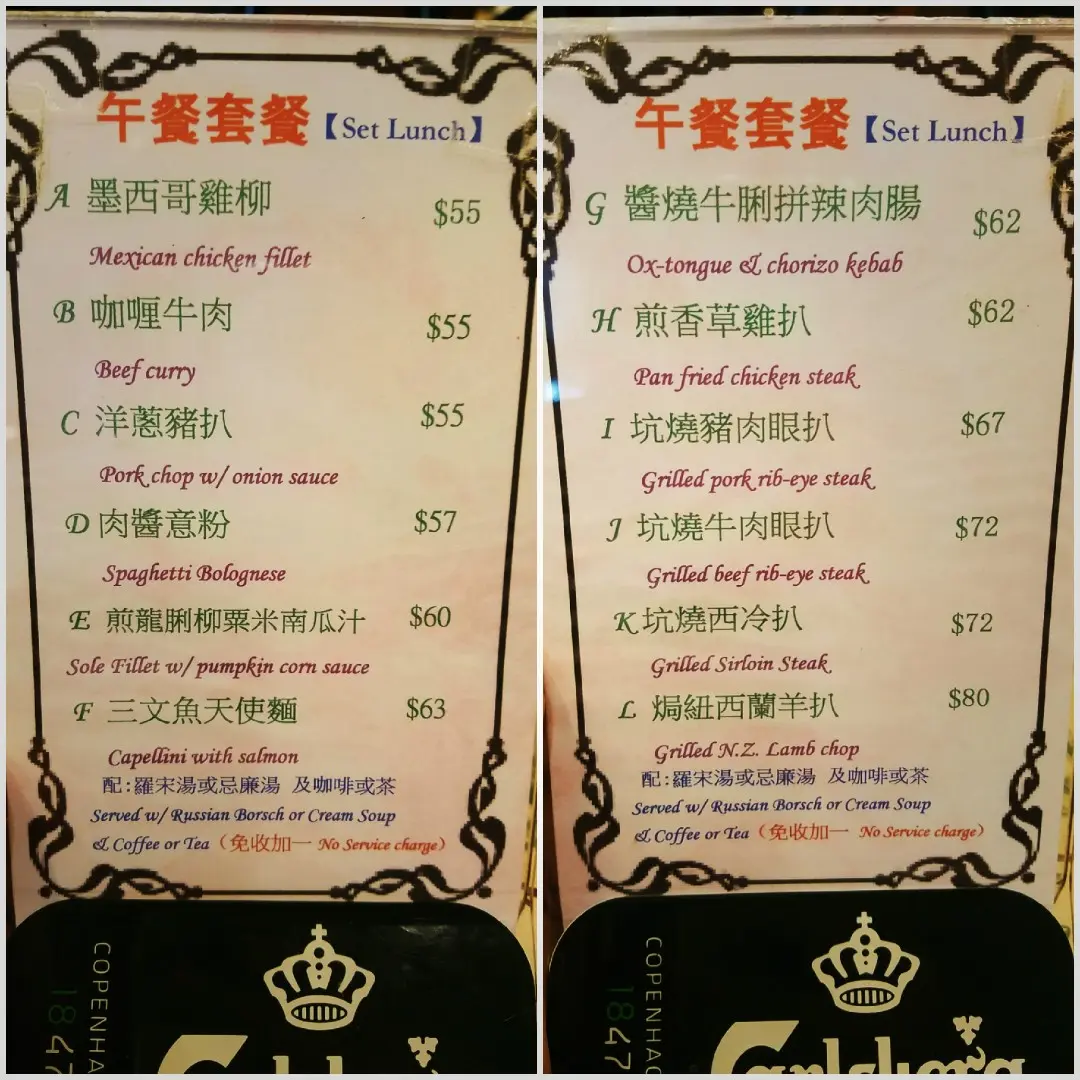 午餐套餐【Set Lunch】
A 墨西哥雞柳 $55
Mexican chicken fillet
B 咖喱牛肉 $55
Beef curry
C 洋蔥豬扒 $55
Pork chop w/ onion sauce
D 肉醬意粉 $57
Spaghetti Bolognese
E 煎龍脷柳粟米南瓜汁 $60
Sole Fillet w/ pumpkin corn sauce
F 三文魚天使麵 $63
Capellini with salmon
配:羅宋湯或忌廉湯 及咖啡或茶
Served w/ Russian Borsch or Cream Soup
& Coffee or Tea (免收加一 No Service charge)
COPENHA
1847
午餐套餐【Set Lunch】
G 醬燒牛脷拼辣肉腸 $62
Ox-tongue & chorizo kebab
H 煎香草雞扒 $62
Pan fried chicken steak
I 坑燒豬肉眼扒 $67
Grilled pork rib-eye steak
J 坑燒牛肉眼扒 $72
Grilled beef rib-eye steak
K 坑燒西冷扒 $72
Grilled Sirloin Steak
L 焗紐西蘭羊扒 $80
Grilled N.Z. Lamb chop
配:羅宋湯或忌廉湯 及咖啡或茶
Served w/ Russian Borsch or Cream Soup
& Coffee or Tea (免收加一 No Service charge)
COPENHAG
1847
Carlsberg